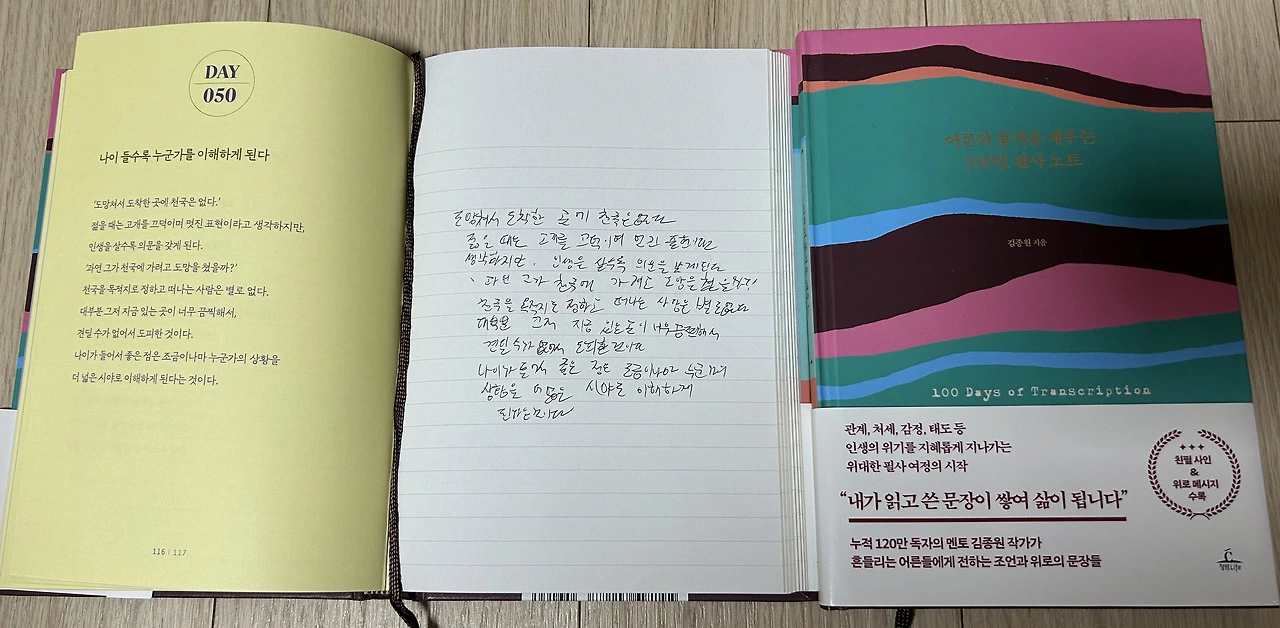 DAY
050
나이 들수록 누군가를 이해하게 된다
‘도망쳐서 도착한 곳에 천국은 없다.’
젊을 때는 고개를 끄덕이며 멋진 표현이라고 생각하지만,
인생을 살수록 의문을 갖게 된다.
‘과연 그가 천국에 가려고 도망을 쳤을까?’
천국을 목적지로 정하고 떠나는 사람은 별로 없다.
대부분 그저 지금 있는 곳이 너무 끔찍해서,
견딜 수가 없어서 도피한 것이다.
나이가 들어서 좋은 점은 조금이나마 누군가의 상황을
더 넓은 시야로 이해하게 된다는 것이다.
116 | 117
도망쳐서 도착한 곳에 천국은 없다
젊은 때는 고개를 끄덕이며 멋진 표현이라
생각하지만, 인생을 살수록 의문을 갖게된다
과연 그가 천국에 가려고 도망을 쳤을까?
천국을 목적지로 정하고 떠나는 사람은 별로없다
대부분 그저 지금 있는 곳이 너무끔찍해서
견딜 수가 없어서 도피한 것이다
나이가 들어서 좋은 점은 조금이나마 누군가의
상황을 더 넓은 시야로 이해하게
된다는것이다
어른의 품격을 채우는
100일 필사 노트
김종원 지음
100 Days of Transcription
관계, 처세, 감정, 태도 등
인생의 위기를 지혜롭게 지나가는
위대한 필사 여정의 시작
“내가 읽고 쓴 문장이 쌓여 삶이 됩니다”
누적 120만 독자의 멘토 김종원 작가가
흔들리는 어른들에게 전하는 조언과 위로의 문장들
친필 사인
&
위로 메시지
수록
청림Life